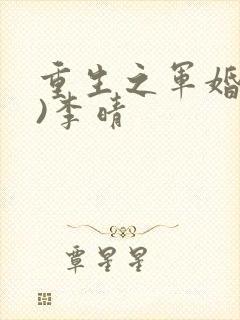 重生之军婚
)李晴
覃星星